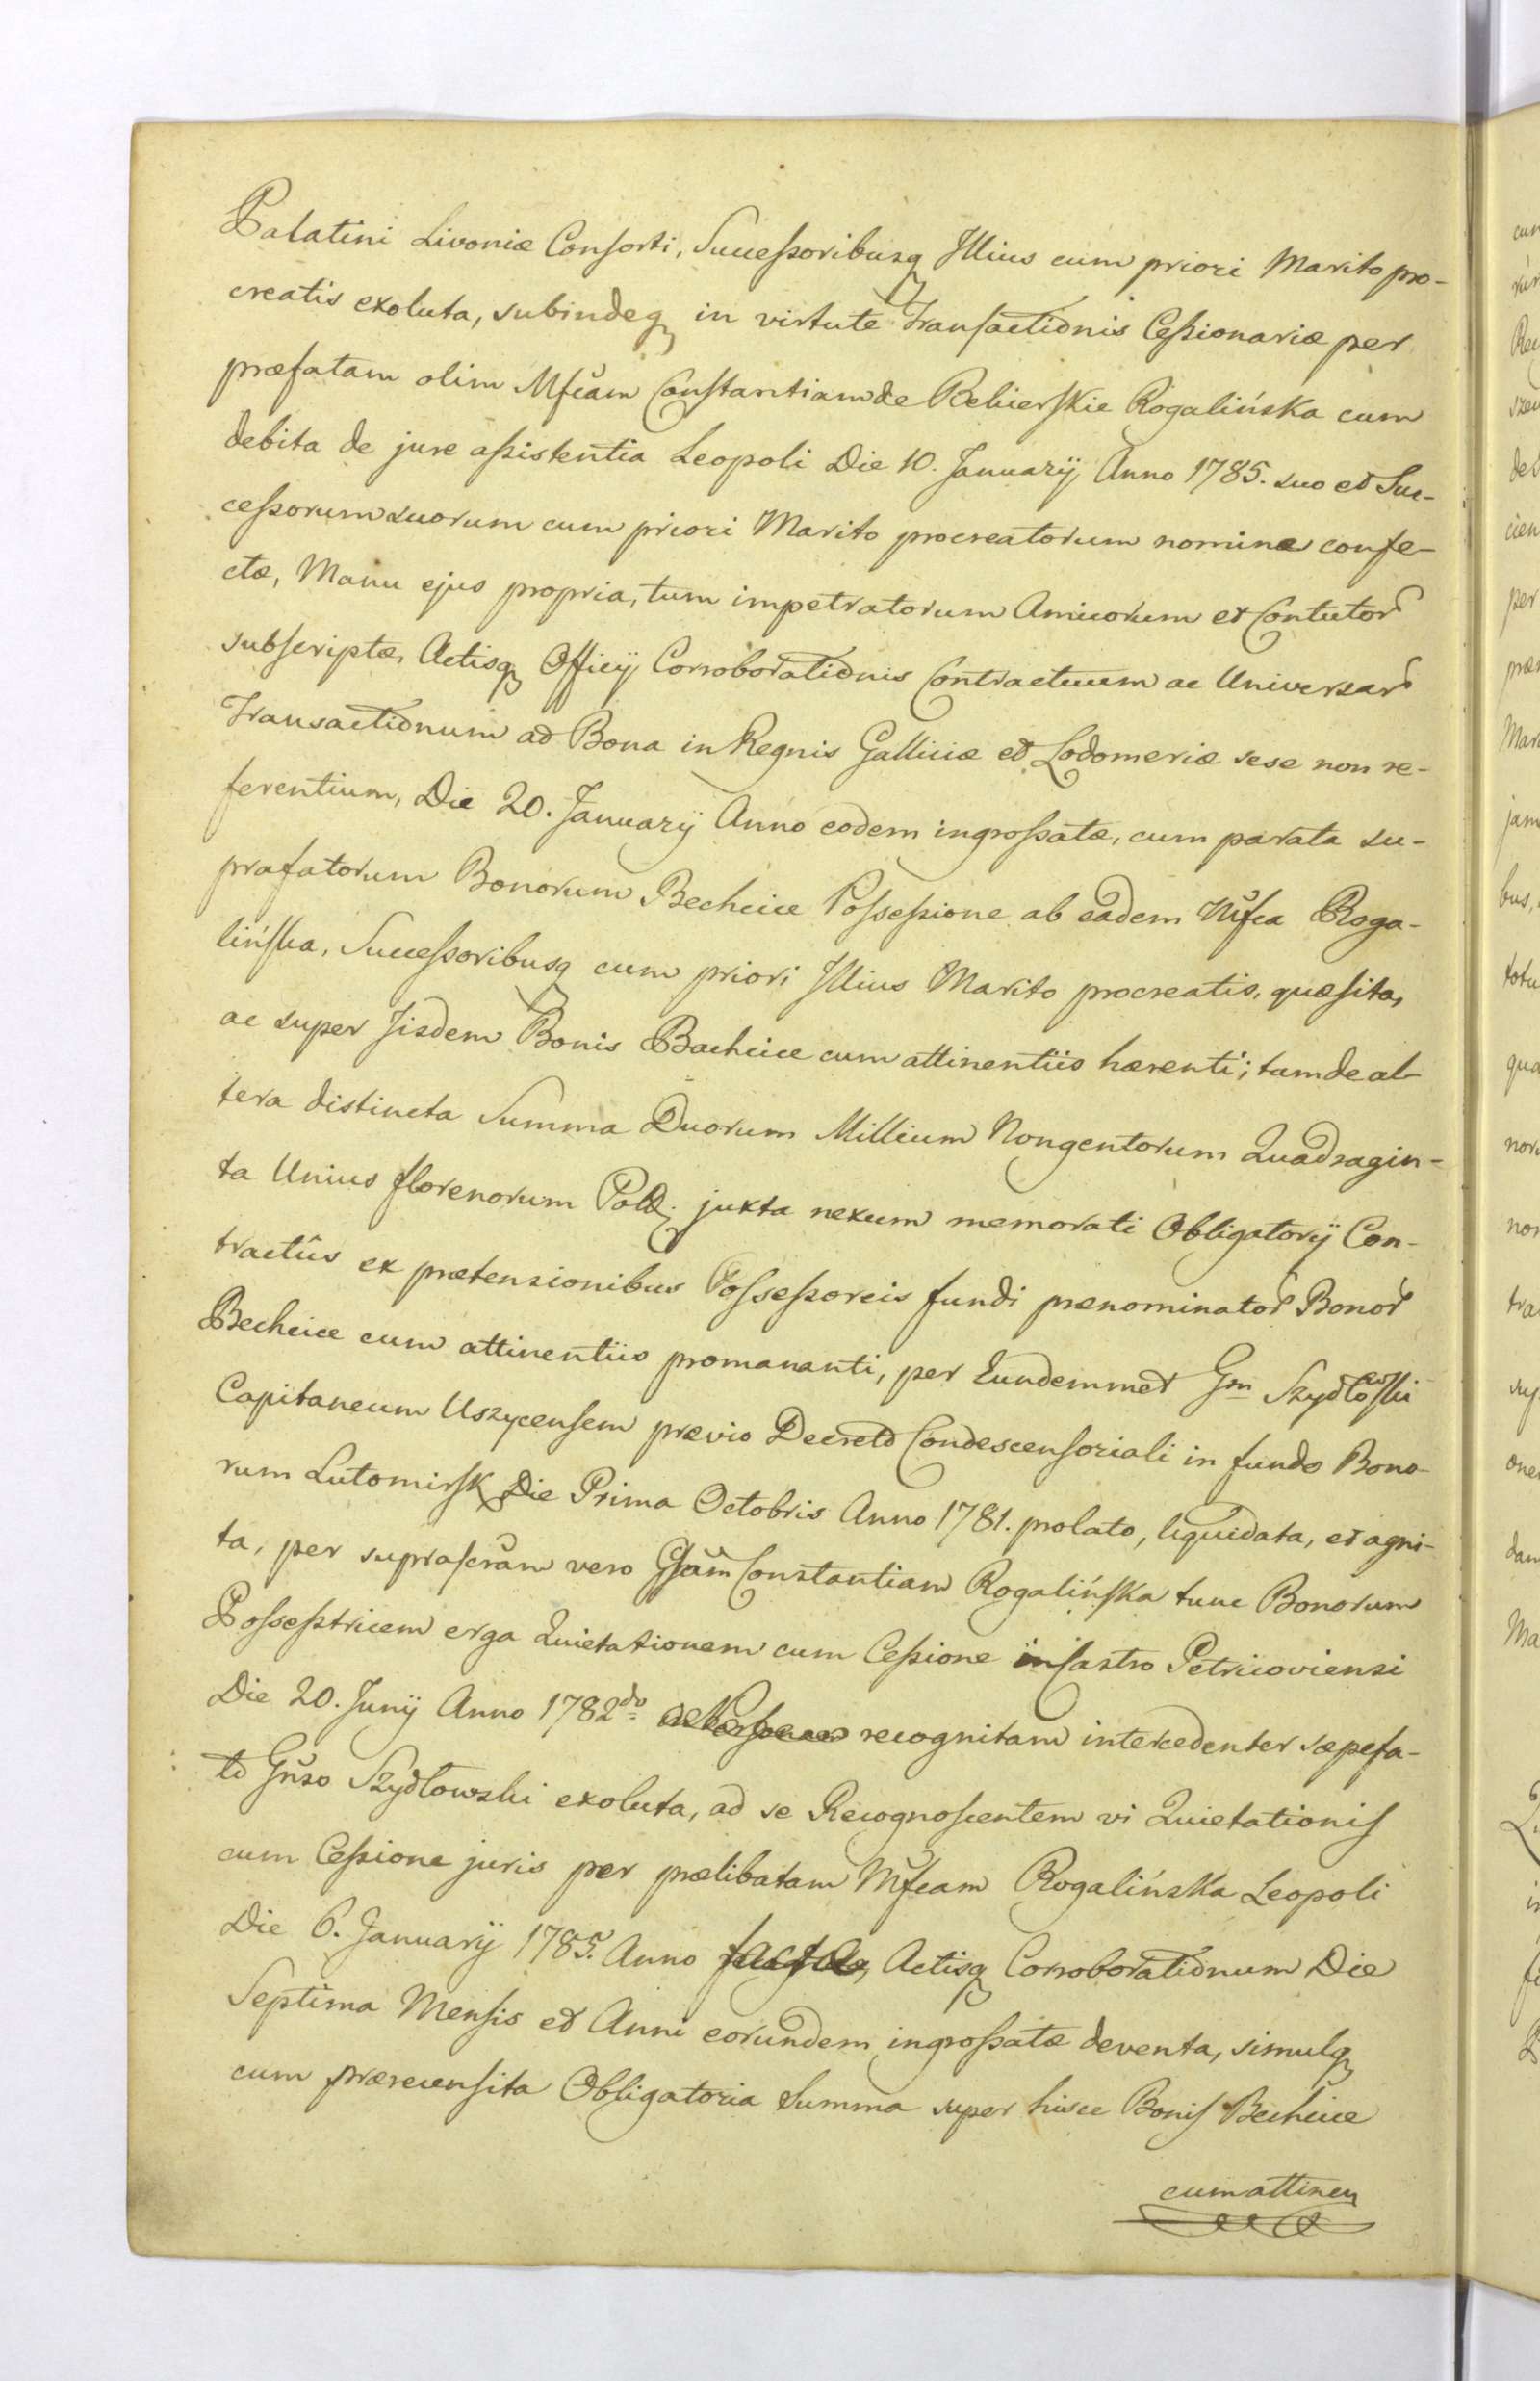 Palatini Livoniæ Consorti, Successoribusq Illius cum priori Marito pro-
creatis exoluta, subindeq in virtute Transactionis Cessionariæ per
præfatam olim Mfcam Constantiam de Bekierskie Rogalińska cum
debita de jure assistentia Leopoli Die 10. Januarij Anno 1785. suo et Suc-
cessorum suorum cum priori Marito procreatorum nomine confe-
ctæ, Manu ejus propria, tum impetratorum Amicorum et Contutor
subscriptæ, Actisq Officij Corroborationis Contractuum ac Universar
Transactionum ad Bona in Regnis Galliciæ et Lodomeriæ sese non re-
ferentium, Die 20. Januarij Anno eodem ingrossatæ, cum parata su-
prafatorum Bonorum Bechcice Possessione ab eadem Mfca Roga-
lińska, Successoribusq cum priori Illius Marito procreatis, quæsita,
ac super Iisdem Bonis Bachcice cum attinentiis hærenti; tum de al-
tera distincta Summa Duorum Millium Nongentorum Quadragin-
ta Unius florenorum Pold. juxta nexum memorati Obligatorij Con-
tractûs ex prætensionibus Possessoreis fundi prænominator Bonor
Bechcice cum attinentiis promananti, per Eundemmet Gm Szydłowski
Capitaneum Uszycensem prævio Decreto Condescensoriali in fundo Bono-
rum Lutomirsk Die Prima Octobris Anno 1781. prolato, liquidata, et agni-
ta, per suprascram vero Gsam Constantiam Rogalińska tunc Bonorum
Possesstricem erga Quietationem cum Cessione in Castro Petricoviensi
Die 20. Junij Anno 1782do recognitam intercedenter sæpefa-
to Gnso Szydłowski exoluta, ad se Recognoscentem vi Quietationis
cum Cessione juris per prælibatam Mfcam Rogalińska Leopoli
Die 6. Januarij 1785. Anno factæ, Actisq Corroborationum Die
Septima Mensis et Anni eorundem ingrossatæ deventa, simulq
cum prærecensita Obligatoria Summa super hisce Bonis Bechcice
cum attinen